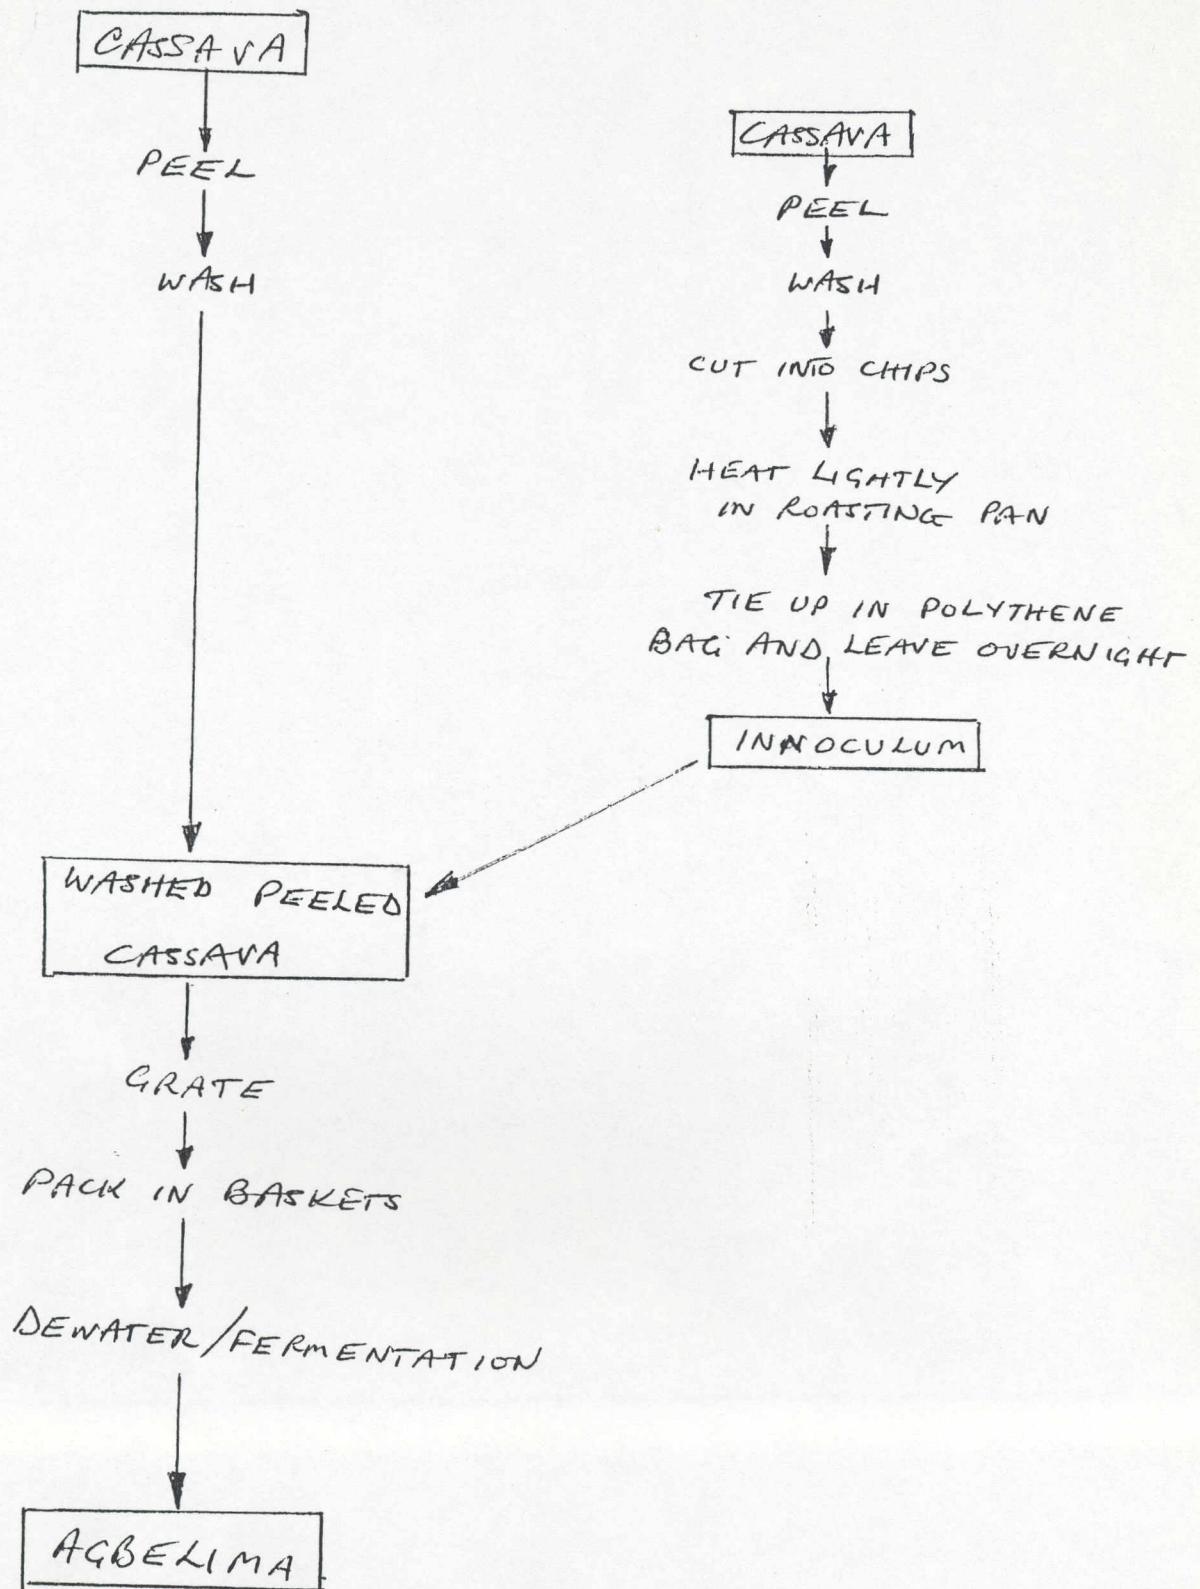 CASSAVA
PEEL
WASH
CASSAVA
PEEL
WASH
CUT INTO CHIPS
HEAT LIGHTLY
IN ROASTING PAN
TIE UP IN POLYTHENE
BAG AND LEAVE OVERNIGHT
INNOCULUM
WASHED PEELED
CASSAVA
GRATE
PACK IN BASKETS
DEWATER/FERMENTATION
AGBELIMA